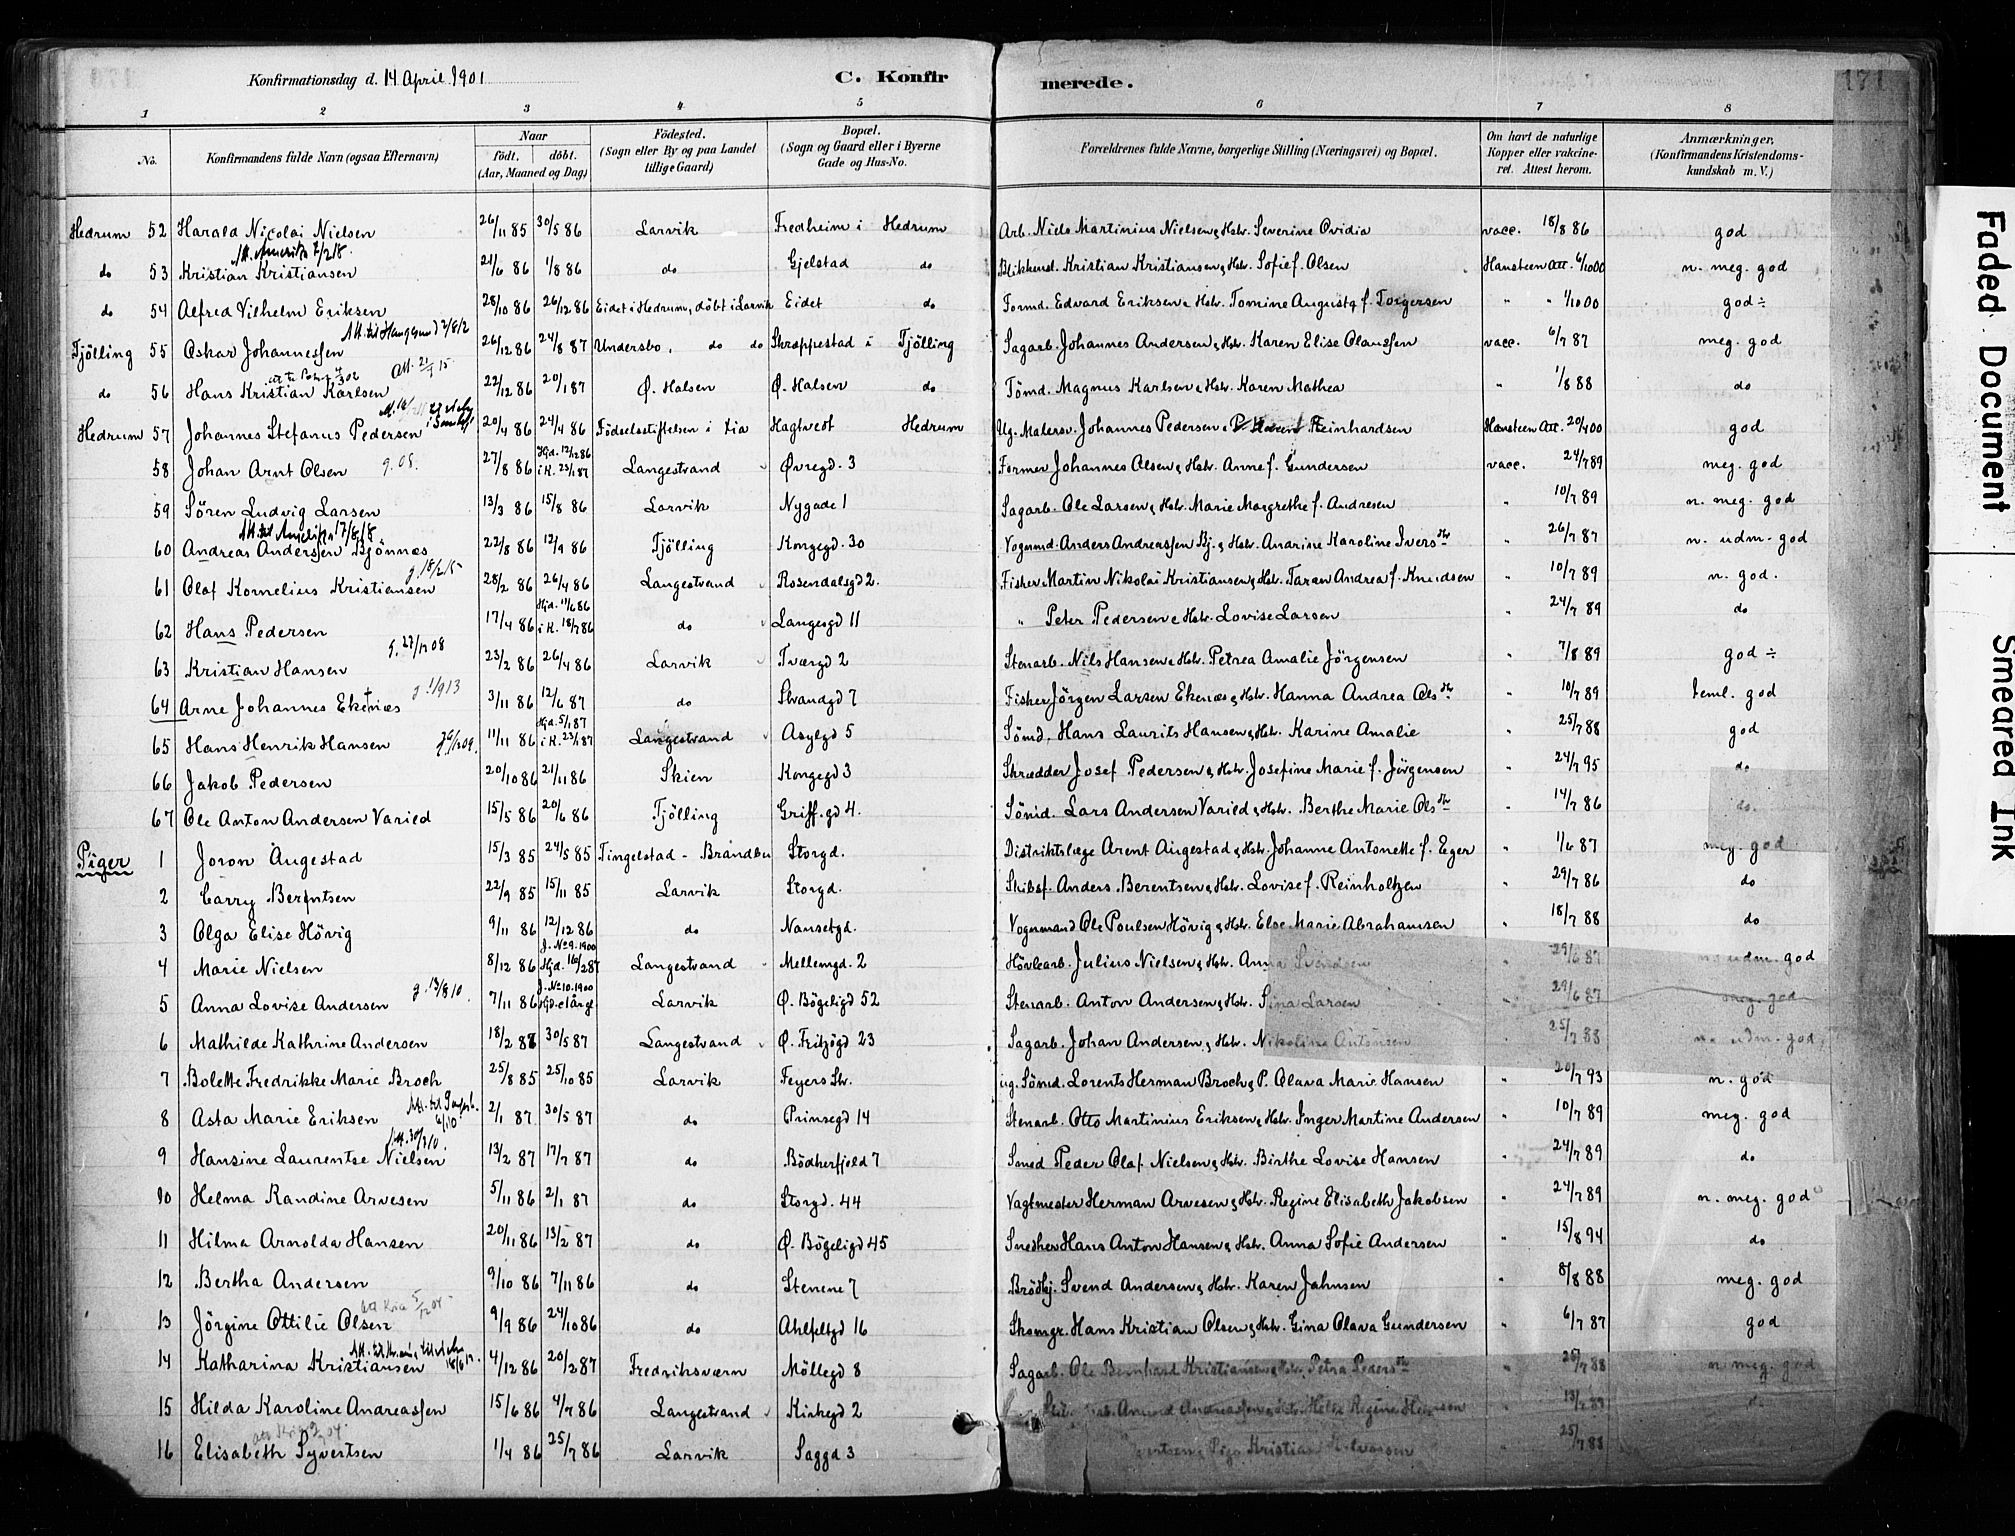 Konfirmationsdag d. 14 April 1901 C. Konfirmerede. 171
1 2 3 4 5 6 7 8
No. Konfirmandens fulde Navn (ogsaa Efternavn) Naar födt. döbt. (Aar, Maaned og Dag) Födested. (Sogn eller By og paa Landet tillige Gaard) Bopæl. (Sogn og Gaard eller i Byerne Gade og Hus-No. Forældrenes fulde Navne, borgerlige Stilling (Næringsvei) og Bopæl. Om havt de naturlige Kopper eller vakcineret. Attest herom. Anmærkninger. (Konfirmandens Kristendomskundskab m. V.)
Hedrum 52 Harald Nicolai Nielsen 26/11 85 30/5 86 Larvik Fredheim i Hedrum Arb. Niels Martinius Nielsen & Hstr. Severine Ovidia vacc. 18/8 86 god
Att. Amerika 7/2 18.
do 53 Kristian Kristiansen 21/6 86 1/8 86 do Gjelstad do Blikkensl. Kristian Kristiansen & Hstr. Sofie f. Olsen Hansteen Att. 6/10 00 n. meg. god
do 54 Alfred Vilhelm Eriksen 28/10 86 26/12 86 Eidet i Hedrum, döbt i Larvik Eidet do Formd. Edvard Eriksen & Hstr. Tomine Augusta f. Torgersen " " 1/10 00 god ÷
Att. til Haugesund 2/8 12
Tjölling 55 Oskar Johannessen 26/12 86 24/8 87 Undersbo, do do Skræppestad i Tjölling Sagarb. Johannes Andersen & Hstr. Karen Elise Olaussen vacc. 6/7 87 meg. god
do 56 Hans Kristian Karlsen 22/12 86 20/1 87 Ø. Halsen Ø. Halsen do Tömd. Magnus Karlsen & Hstr. Karen Mathea " 1/8 88 do
Hedrum 57 Johannes Stefanus Pedersen 20/4 86 24/4 86 Födselsstiftelsen i Xia Hagtvedt Hedrum Ug. Malersv. Johannes Pedersen & P. Reinhardsen Hansteen Att. 20/4 00 god
58 Johan Arnt Olsen g. 08. 27/8 86 Hjd. 12/12 86 i K. 23/1 87 Langestrand Øvregd. 3 Former Johannes Olsen & Hstr. Anne f. Gundersen vacc. 24/7 89 meg. god
59 Sören Ludvig Larsen 13/3 86 15/8 86 Larvik Nygade 1 Sagarb. Ole Larsen & Hstr. Marie Margrethe f. Andresen " 10/7 89 n. meg. god
Att. til Amerika 17/8 18
60 Andreas Anderssen Bjönnæs 22/8 86 12/9 86 Tjölling Kongegd. 30 Vognmd. Anders Andreassen Bj. & Hstr. Andrine Karoline Iversdtr " 26/7 87 n. udm. god
61 Olaf Kornelius Kristiansen 28/2 86 26/4 86 Langestrand Rosendalsgd 2. Fisker Martin Nikolai Kristiansen & Hstr. Taran Andrea f. Knudsen " 10/7 89 n. god.
62 Hans Pedersen 17/4 86 Hjd. 11/6 86 i K. 18/7 86 do Langesgd 11 " Peter Pedersen & Hstr. Lovise Larsen " 24/7 89 do
63 Kristian Hansen 23/2 86 26/4 86 Larvik Tværgd 2 Stenarb. Nils Hansen & Hstr. Petrea Amalie Jörgensen " 7/8 89 god ÷
64 Arne Johannes Ekenæs g 1/9 13 3/11 86 12/6 87 do Strandgd 7 Fisker Jörgen Larsen Ekenæs & Hstr. Hanna Andrea Olsdtr " 10/7 89 teml. god
65 Hans Henrik Hansen 11/11 86 Hjd. 5/1 87 i K. 23/1 87 Langestrand Asylgd 5 Sömd. Hans Laurits Hansen & Hstr. Karine Amalie " 25/7 88 god
66 Jakob Pedersen 20/10 86 21/11 86 Skien Kongegd 3 Skrædder Josef Pedersen & Hstr. Josefine Marie f. Jörgensen " 24/7 95 do
67 Ole Anton Andersen Varild 15/5 86 20/6 86 Tjölling Griff.gd 4. Sömd. Lars Andersen Varild & Hstr. Berthe Marie Olsdtr " 14/7 86 do.
Piger 1 Joron Augestad 15/3 85 24/5 85 Tingelstad - Brandbu Storgd. Distriktslæge Arent Augestad & Hstr. Johanne Antonette f. Eger " 1/6 87 meg. god
2 Carry Berentsen 22/9 85 15/11 85 Larvik Storgd. Skibsf. Anders Berentsen & Hstr. Lovise f. Reinholtzen " 29/7 86 do
3 Olga Elise Hövig 9/11 86 12/12 86 do Nansetgd. Vognmand Ole Poulsen Hövig & Hstr. Else Marie Abrahamsen " 18/7 88 do
4 Marie Nielsen 8/12 86 J. No 9. 1900 Hjd. 16/2 87 Langestrand Mellemgd. 2 Hövlearb. Julius Nielsen & Hstr. Anna Svendsen 29/6 87 n. udm. god
5 Anna Lovise Andersen g. 13/8 10. 7/11 86 J. No 10. 1900 Larvik Ø. Bögeligd 52 Stenarb. Anton Andersen & Hstr. Sina Larsen 29/6 87 meg. god
6 Mathilde Kathrine Andersen 18/2 87 30/5 87 Langestrand Ø. Fritzögd 23 Sagarb. Johan Andersen & Hstr. Nikoline Antonsen 25/7 88 n. udm. god
7 Bolette Fredrikke Marie Broch 25/8 85 25/10 85 Larvik Feyers Str. ug. Sömd. Lorents Herman Broch & P. Olava Marie Hansen " 20/7 93 n. god
8 Asta Marie Eriksen 2/1 87 30/5 87 do Prinsegd 14 Stenarb. Otto Martinius Eriksen & Hstr. Inger Martine Andersen " 10/7 89 meg. god
9 Hansine Laurentse Nielsen 13/2 87 17/7 87 do Bödkerfjeld 7 Smed Peder Olaf Nielsen & Hstr. Birthe Lovise Hansen " 24/7 89 do
10 Helma Randine Arvesen 5/11 86 2/1 87 do Storgd. 44 Vagtmester Herman Arvesen & Hstr. Regine Elisabeth Jakobsen " 24/7 89 n. meg. god
11 Hilma Arnolda Hansen 20/11 86 13/2 87 do Ø. Bögeligd 45 Snedker Hans Anton Hansen & Hstr. Anna Sofie Andersen " 15/8 94 do
12 Bertha Andersen 9/10 86 7/11 86 do Stenene 7 Brödkj. Svend Andersen & Hstr. Karen Jahnsen " 8/8 88 meg. god
13 Jörgine Ottilie Olsen 9/9 86 24/10 86 do Ahlfeltgd 16 Skomgr. Hans Kristian Olsen & Hstr. Gina Olava Gundersen " 6/7 87 god
14 Katharina Kristiansen 4/12 86 20/2 87 Fredriksværn Möllegd 8 Sagarb. Ole Bernhard Kristiansen & Hstr. Petra Pedersdtr 25/7 88 n. meg. god
15 Hilda Karoline Andreassen 15/6 86 4/7 86 Langestrand Kirkegd 2 Andreassen & Hstr. Helle Regine Hansen 13/7 89 do
16 Elisabeth Syvertsen 1/4 86 25/7 86 Larvik Saggd 3 Piga Kristian 25/7 88
Faded Document
Smeared Ink